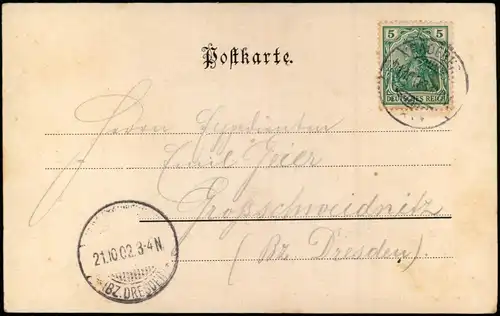 Postkarte.
5 5
DEUTSCHES REICH
Herrn Expedienten
Emil Geier
Großschweidnitz
(Bz. Dresden)
21.10.02.3-4N.
(BZ. DRESDEN)